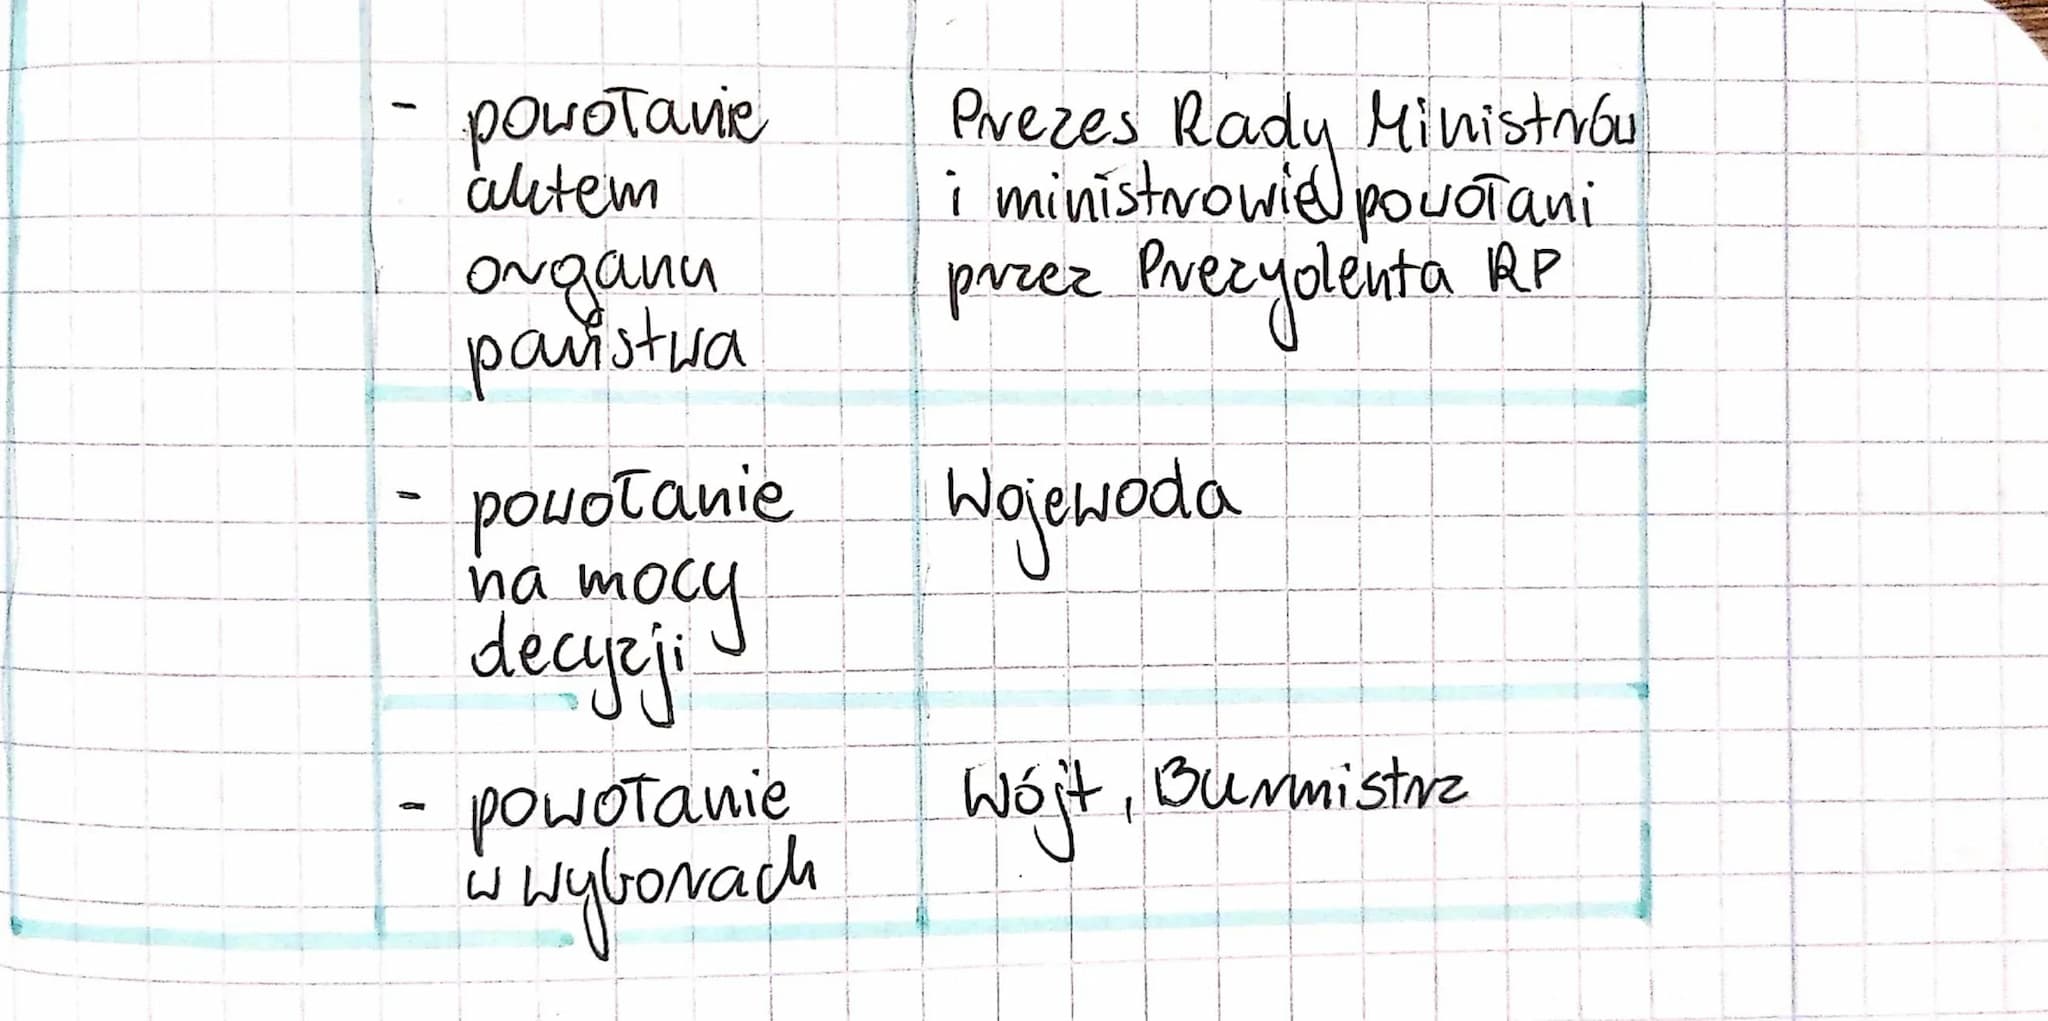 - powołanie
aktem
organu
państwa
Prezes Rady Ministrów
i ministrowie powołani
przez Prezydenta RP
- powołanie
na mocy
decyzji
Wojewoda
- powołanie
w wyborach
Wójt, Burmistrz